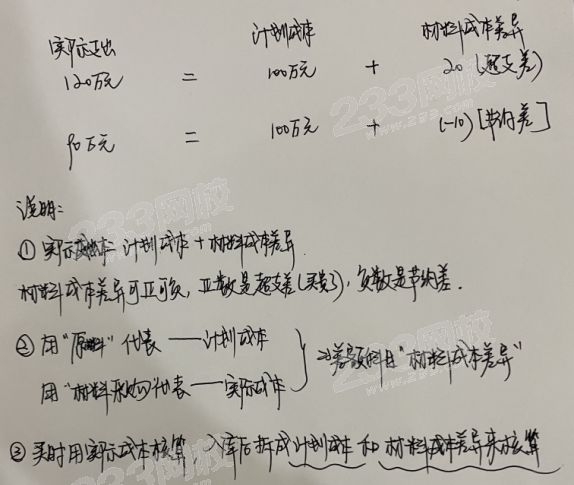 实际支出 计划成本 材料成本差异
120万元 = 100万元 + 20(超支差)
90万元 = 100万元 + (-10)[节约差]
说明:
①实际成本= 计划成本+材料成本差异
材料成本差异可正可负,正数是超支差(买贵了),负数是节约差.
②用"原材料"代表——计划成本
用"材料采购"代表——实际成本
}→差额科目"材料成本差异"
③买时用实际成本核算 入库后拆成计划成本和材料成本差异来核算
233网校
www.233.com
233网校
233网校